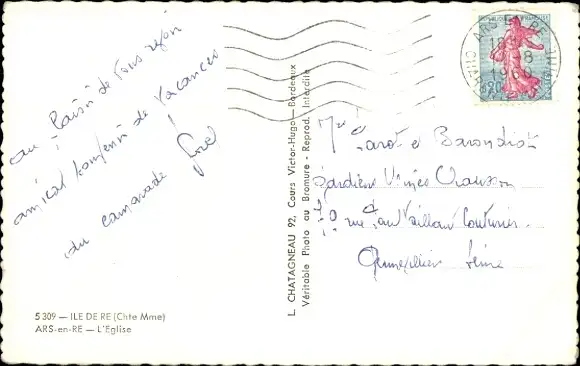 au plaisir de vous revoir
amical souvenir de vacances
du camarade
5 309 — ILE DE RE (Chte Mme)
ARS-en-RE — L'Eglise
L. CHATAGNEAU 92, Cours Victor-Hugo — Bordeaux
Véritable Photo au Bromure - Reprod. Interdite
REPUBLIQUE FRANÇAISE
ARS EN RE
18
8
1960
Mrs Carot et Barondist
Gardiens Usines Chausson
rue Paul Vaillant Couturier
Gennevilliers Seine